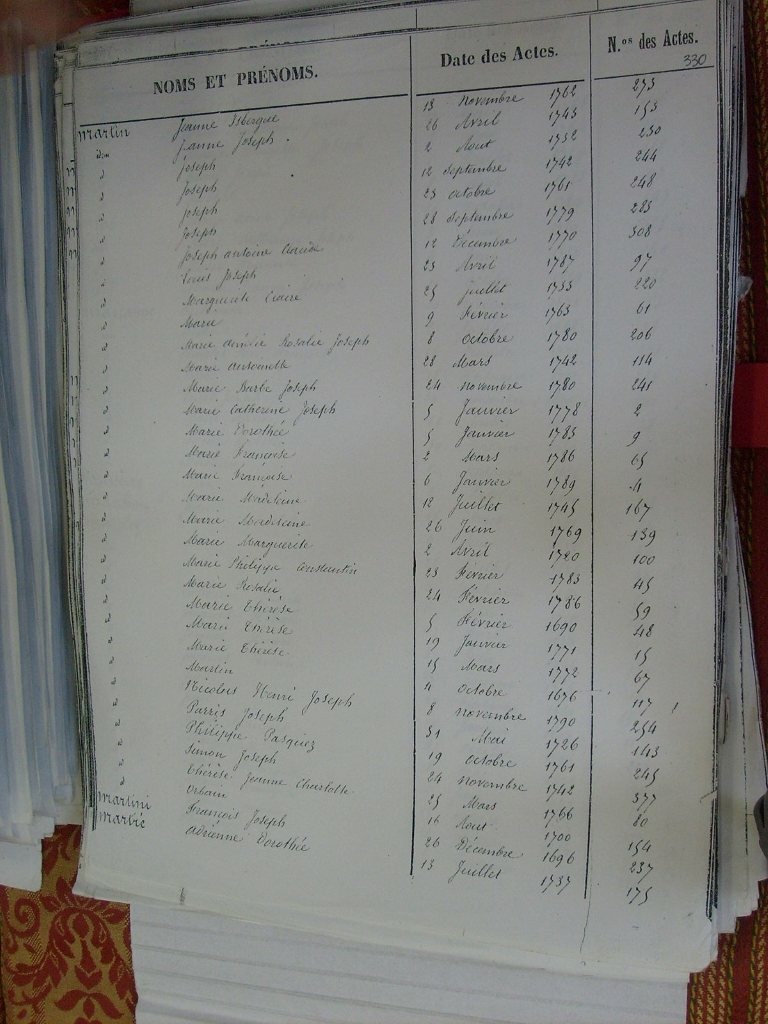 NOMS ET PRÉNOMS. Date des Actes. N.os des Actes.
330
Martin Jeanne Isbergue 13 novembre 1762 273
dm Jeanne Joseph 26 Avril 1743 153
d Joseph 2 Aout 1752 230
d Joseph 12 septembre 1742 244
d Joseph 23 octobre 1761 248
d Joseph 28 septembre 1779 283
d Joseph antoine 12 Décembre 1770 308
d Louis Joseph 23 Avril 1787 97
d Marguerite Claire 25 juillet 1753 220
d Marie 9 Février 1763 61
d Marie Rosalie Joseph 8 octobre 1780 206
d Marie antoinette 28 Mars 1742 114
d Marie Barbe Joseph 24 novembre 1780 241
d Marie Catherine Joseph 5 Janvier 1778 2
d Marie Dorothée 5 Janvier 1783 9
d Marie Françoise 2 Mars 1786 65
d Marie Françoise 6 Janvier 1789 4
d Marie Madeleine 12 Juillet 1745 167
d Marie Madeleine 26 Juin 1769 139
d Marie Marguerite 2 Avril 1720 100
d Marie Philippe Constantin 23 Février 1783 45
d Marie Rosalie 24 Février 1786 59
d Marie Thérèse 5 Février 1690 48
d Marie Thérèse 19 Janvier 1771 15
d Marie Thérèse 15 Mars 1772 67
d Martin 4 octobre 1676 117
d Nicolas Henri Joseph 8 novembre 1790 254
d Parris Joseph 31 Mai 1726 143
d Philippe Pasquez 19 octobre 1761 245
d Simon Joseph 24 novembre 1742 377
d Thérèse Jeanne Charlotte 25 Mars 1766 80
d Urbain 16 Aout 1700 154
Martini François Joseph 26 Décembre 1696 237
adrienne Dorothée 13 Juillet 1737 175